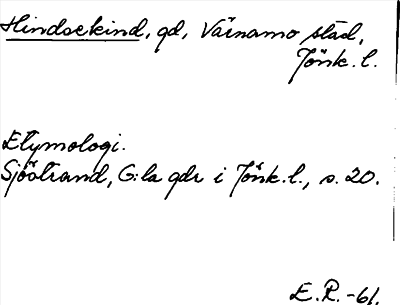 Hindsekind, gd, Värnamo stad,
Jönk. l.
Etymologi.
Sjöstrand, G:la gdr i Jönk. l., s. 20.
E. R. -61.